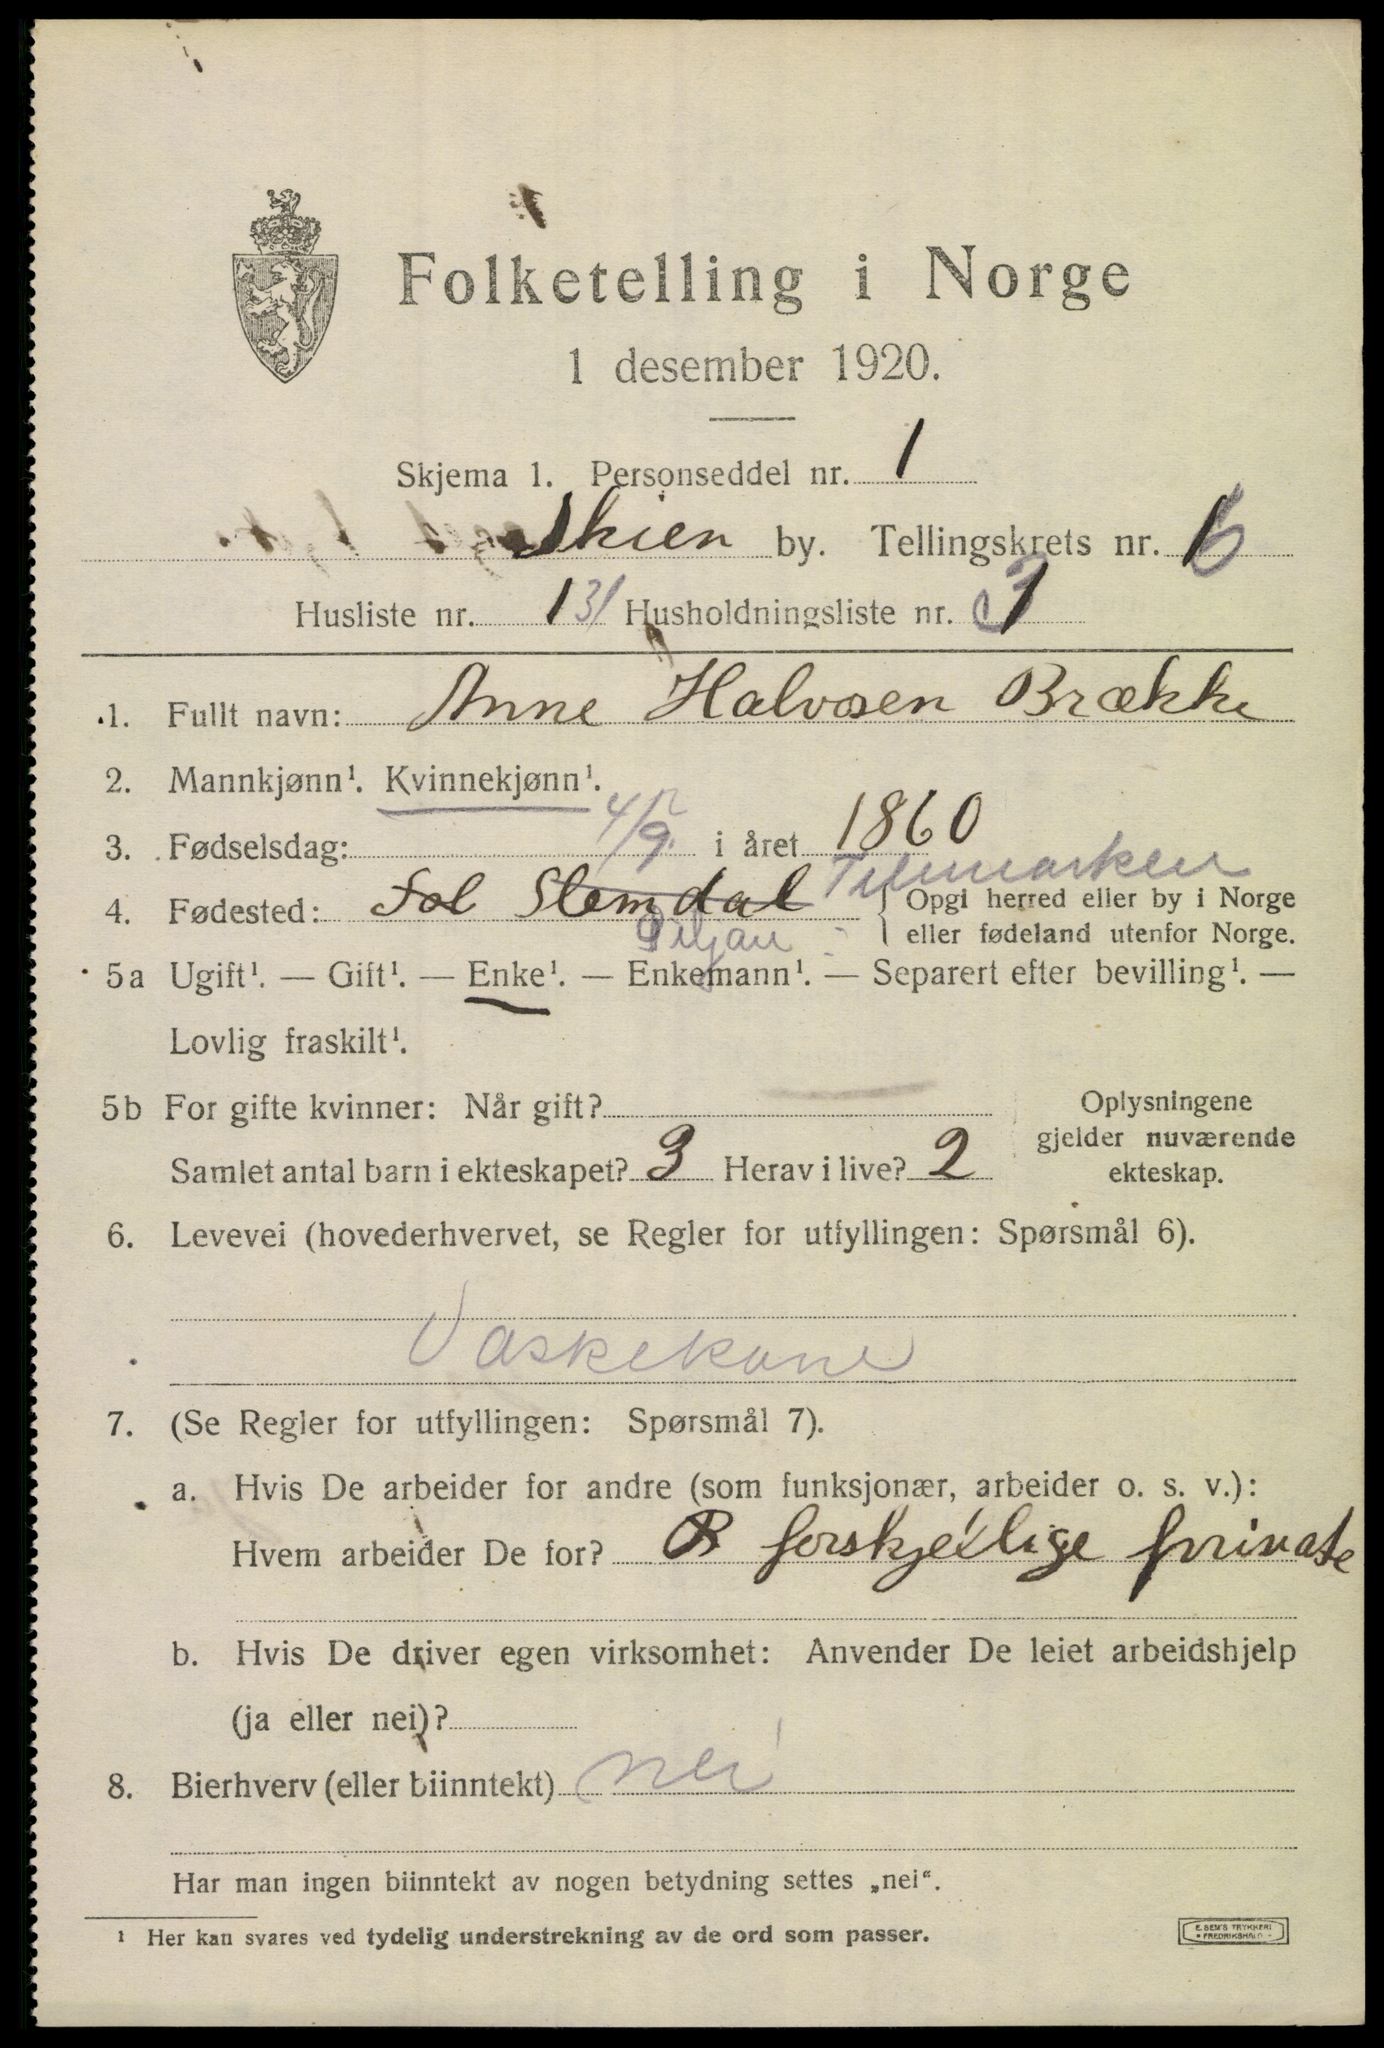 Folketelling i Norge
1 desember 1920.
Skjema 1. Personseddel nr. 1
Skien by. Tellingskrets nr. 6
Husliste nr. 131 Husholdningsliste nr. 3
1. Fullt navn: Anne Halvosen Brække
2. Mannkjønn¹. Kvinnekjønn¹.
3. Fødselsdag: 4/9 i året 1860
Telemarken
4. Fødested: Sol Slemdal Opgi herred eller by i Norge
eller fødeland utenfor Norge.
5a Ugift¹. — Gift¹. — Enke¹. — Enkemann¹. — Separert efter bevilling¹. —
Lovlig fraskilt¹.
5b For gifte kvinner: Når gift? Oplysningene
gjelder nuværende
Samlet antal barn i ekteskapet? 3 Herav i live? 2 ekteskap.
6. Levevei (hovederhvervet, se Regler for utfyllingen: Spørsmål 6).
Vaskekone
7. (Se Regler for utfyllingen: Spørsmål 7).
a. Hvis De arbeider for andre (som funksjonær, arbeider o. s. v.):
Hvem arbeider De for? forskjellige private
b. Hvis De driver egen virksomhet: Anvender De leiet arbeidshjelp
(ja eller nei)?
8. Bierhverv (eller biinntekt) nei
Har man ingen biinntekt av nogen betydning settes „nei“.
¹ Her kan svares ved tydelig understrekning av de ord som passer.
E. SEM'S TRYKKERI
FREDRIKSHALD